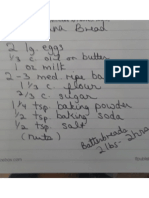 Bread
2 lg. eggs
1/3 c. oil or butter
1 oz milk
2-3 med. ripe ba
1 1/3 c flour
2/3 c. sugar
1 1/4 tsp baking powder
1/2 tsp baking soda
1/2 tsp salt
(nuts)
2 lbs- 2 hrs